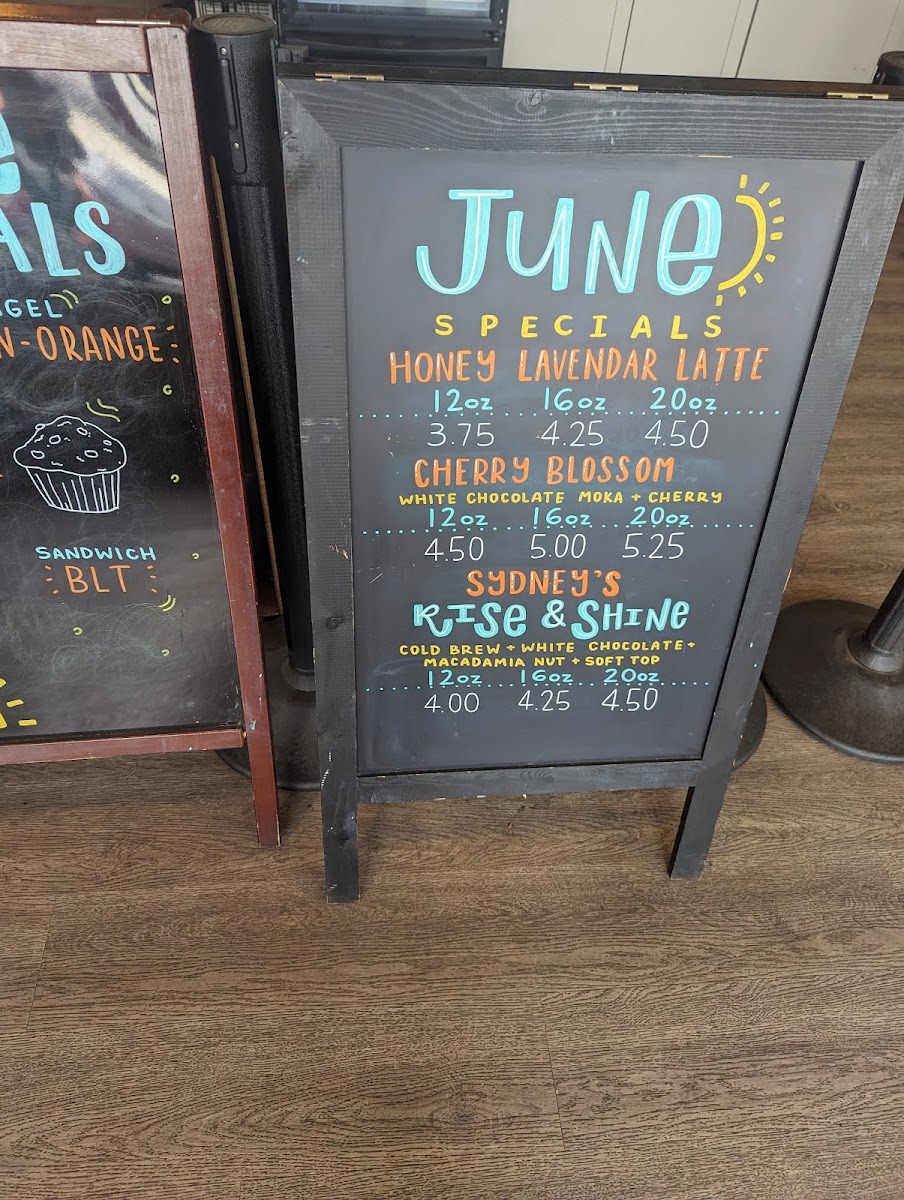 ALS
SANDWICH
BLT
JUNE
SPECIALS
HONEY LAVENDAR LATTE
12oz 16oz 20oz
3.75 4.25 4.50
CHERRY BLOSSOM
WHITE CHOCOLATE MOKA + CHERRY
12oz 16oz 20oz
4.50 5.00 5.25
SYDNEY'S
RISE & SHINE
COLD BREW + WHITE CHOCOLATE +
MACADAMIA NUT + SOFT TOP
12oz 16oz 20oz
4.00 4.25 4.50